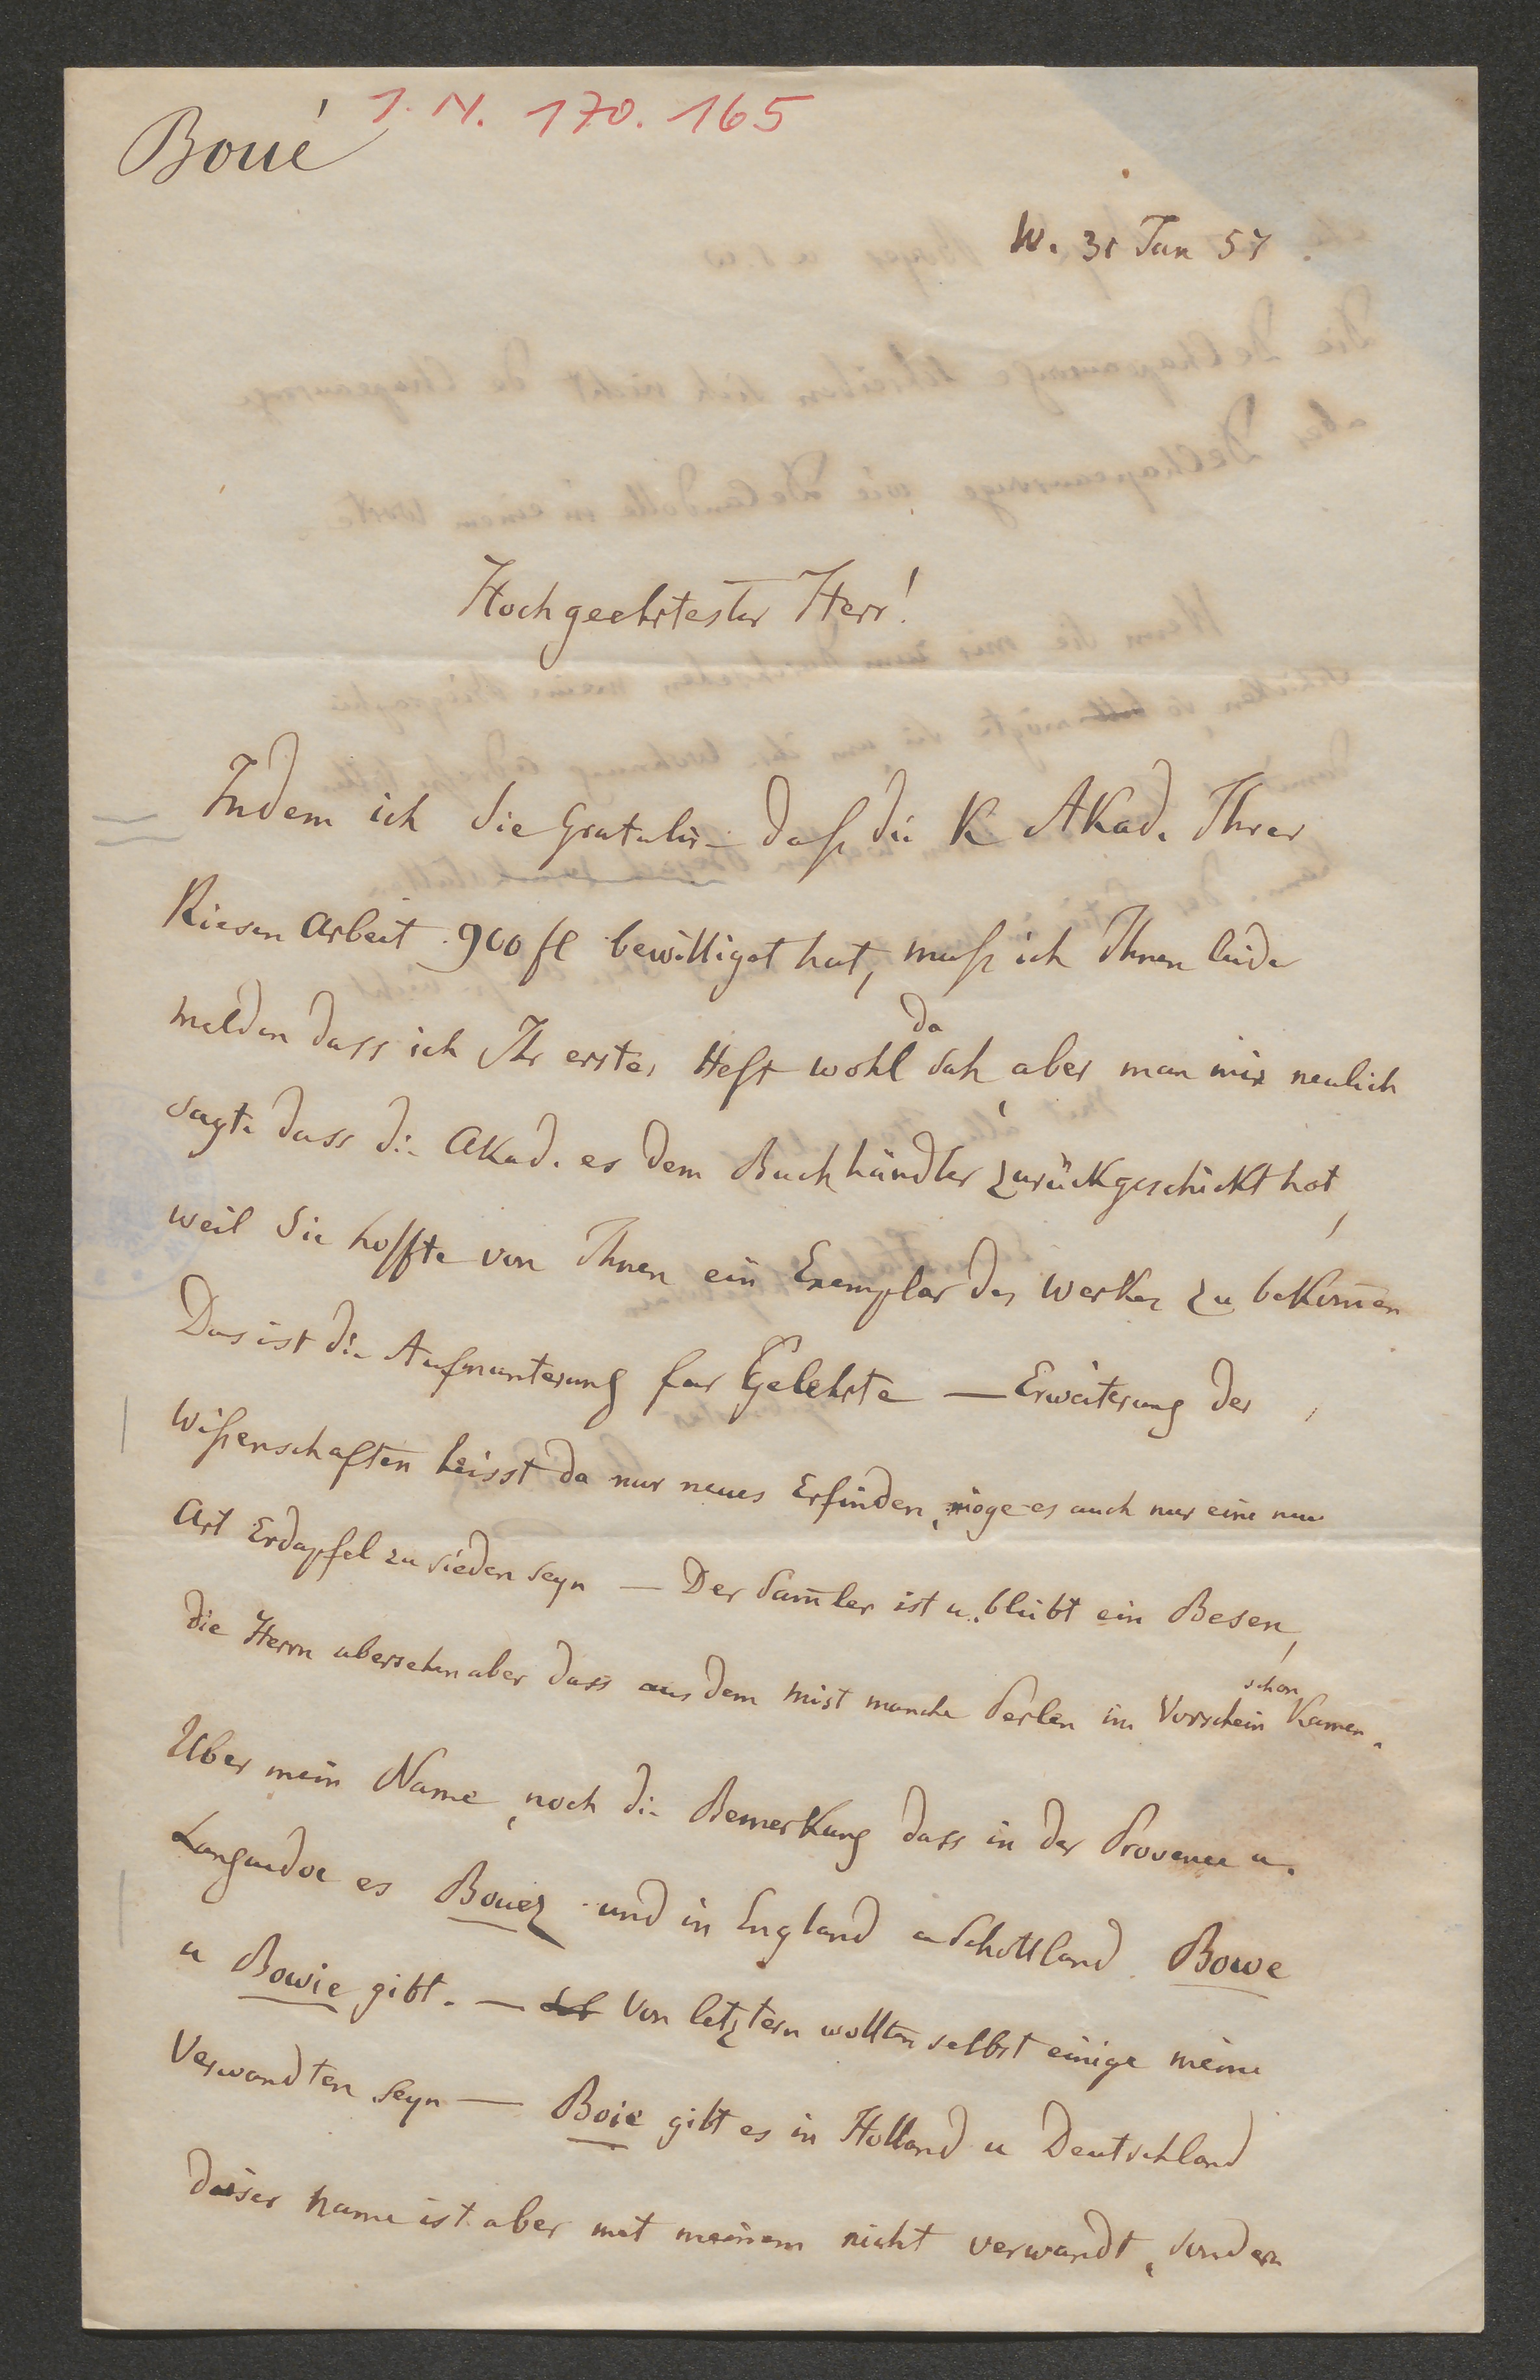 Boué
I. N. 170.165
W. 31 Jan 57
Hochgeehrtester Herr!
Indem ich Sie Gratulire daß die K Akad. Ihrer
Riesen Arbeit 900 fl bewilliget hat, muß ich Ihnen leider
melden dass ich Ihr erstes Heft wohl da sah, aber man mir neulich
sagte dass die Akad. es dem Buchhändler zurückgeschickt hat,
weil Sie hoffte von Ihnen ein Exemplar des Werkes zu bekom̄en
Das ist die Aufmunterung fur Gelehrte — Erweiterung der
Wißenschaften heisst da nur neues Erfinden, möge es auch nur eine neue
Art Erdapfel zu sieden seyn — Der Sam̄ler ist u. bleibt ein Besen,
die Herrn ubersehen aber dass aus dem Mist manche Perlen im Vorschein schon kamen.
Uber mein Name, noch die Bemerkung dass in der Provence u.
Languedoc es Bouez und in England u Schottland Bowe
u Bowie gibt. — Von letztern wollten selbst einige meine
Verwandten seyn — Boie gibt es in Holland u Deutschland
dieser Name ist aber mit meinem nicht verwandt, sondern